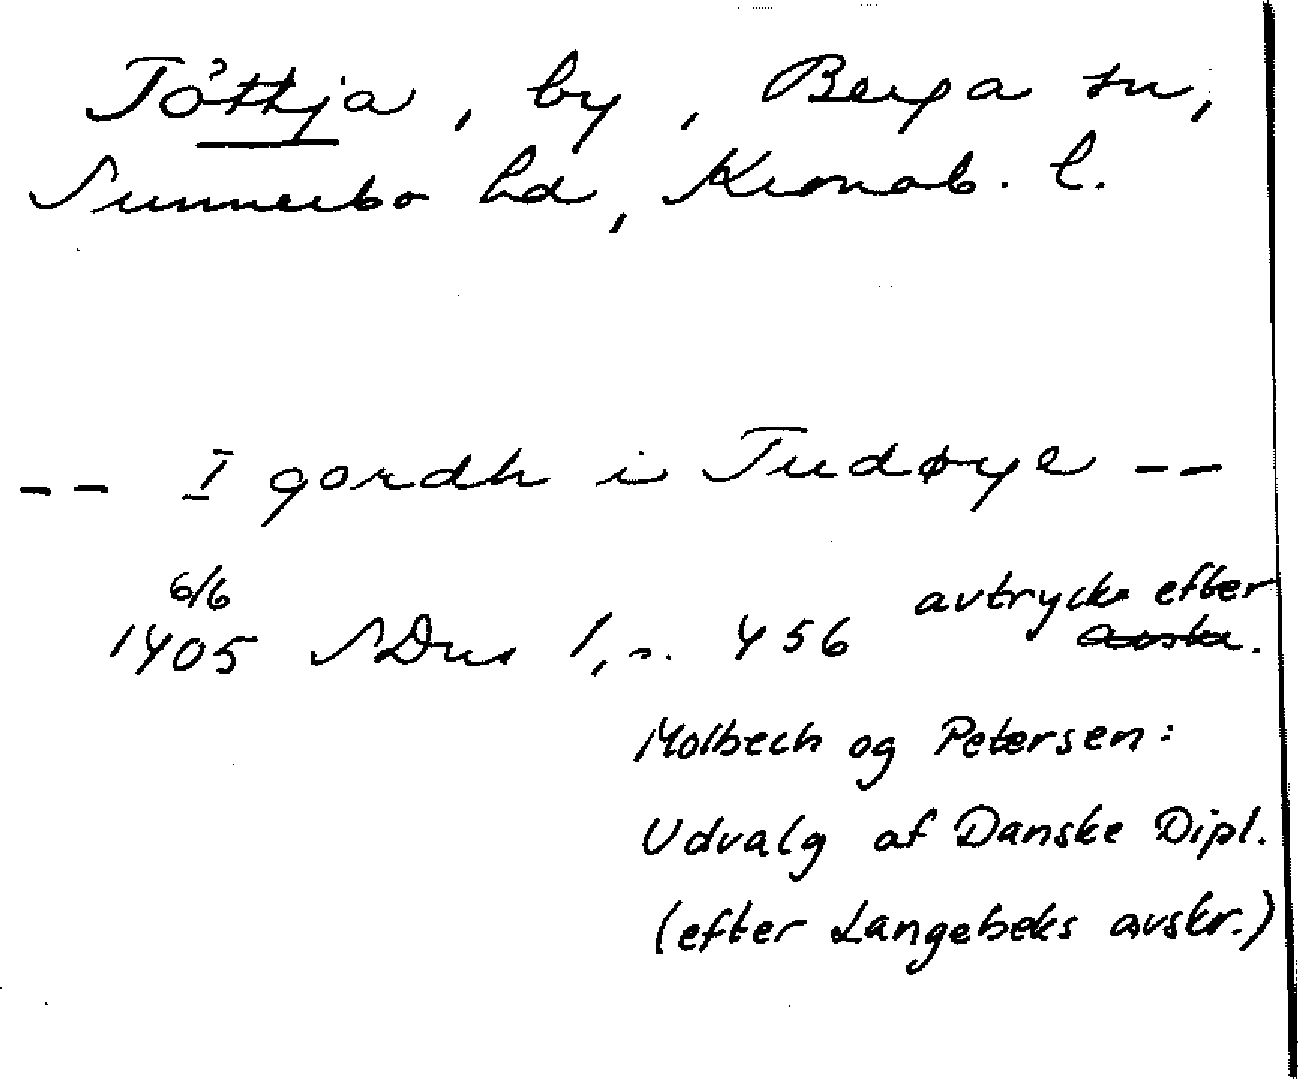 Töthja, by, Berga sn,
Sunnerbo hd, Kronob. l.
-- I gordh i Tudøye --
6/6
1405 SDns 1, s. 456 avtryck efter
avskr.
Molbech og Petersen:
Udvalg af Danske Dipl.
(efter Langebeks avskr.)